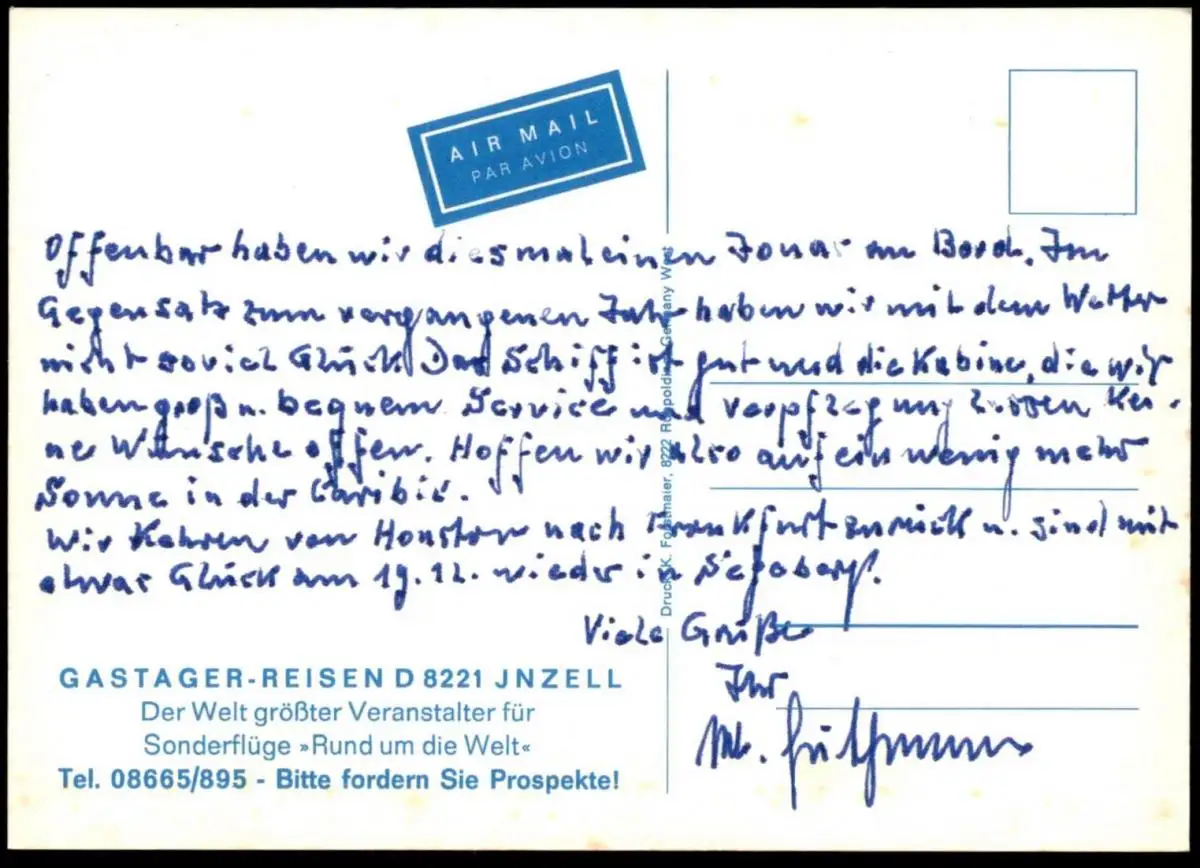 AIR MAIL
PAR AVION
Offenbar haben wir diesmal einen Jonas an Bord. Im
Gegensatz zum vergangenen Jahr haben wir mit dem Wetter
nicht soviel Glück. Das Schiff ist gut und die Kabine, die wir
haben groß u. bequem Service und Verpflegung lassen kei-
ne Wünsche offen. Hoffen wir also auf ein wenig mehr
Sonne in der Caribic.
Wir kehren von Houston nach Frankfurt zurück u. sind mit
etwas Glück am 19.12. wieder in Segeberg.
Viele Grüße
Ihr
Druck: K. Forstmaier, 8222 Ruhpolding, Germany West
GASTAGER-REISEN D 8221 JNZELL
Der Welt größter Veranstalter für
Sonderflüge »Rund um die Welt«
Tel. 08665/895 - Bitte fordern Sie Prospekte!